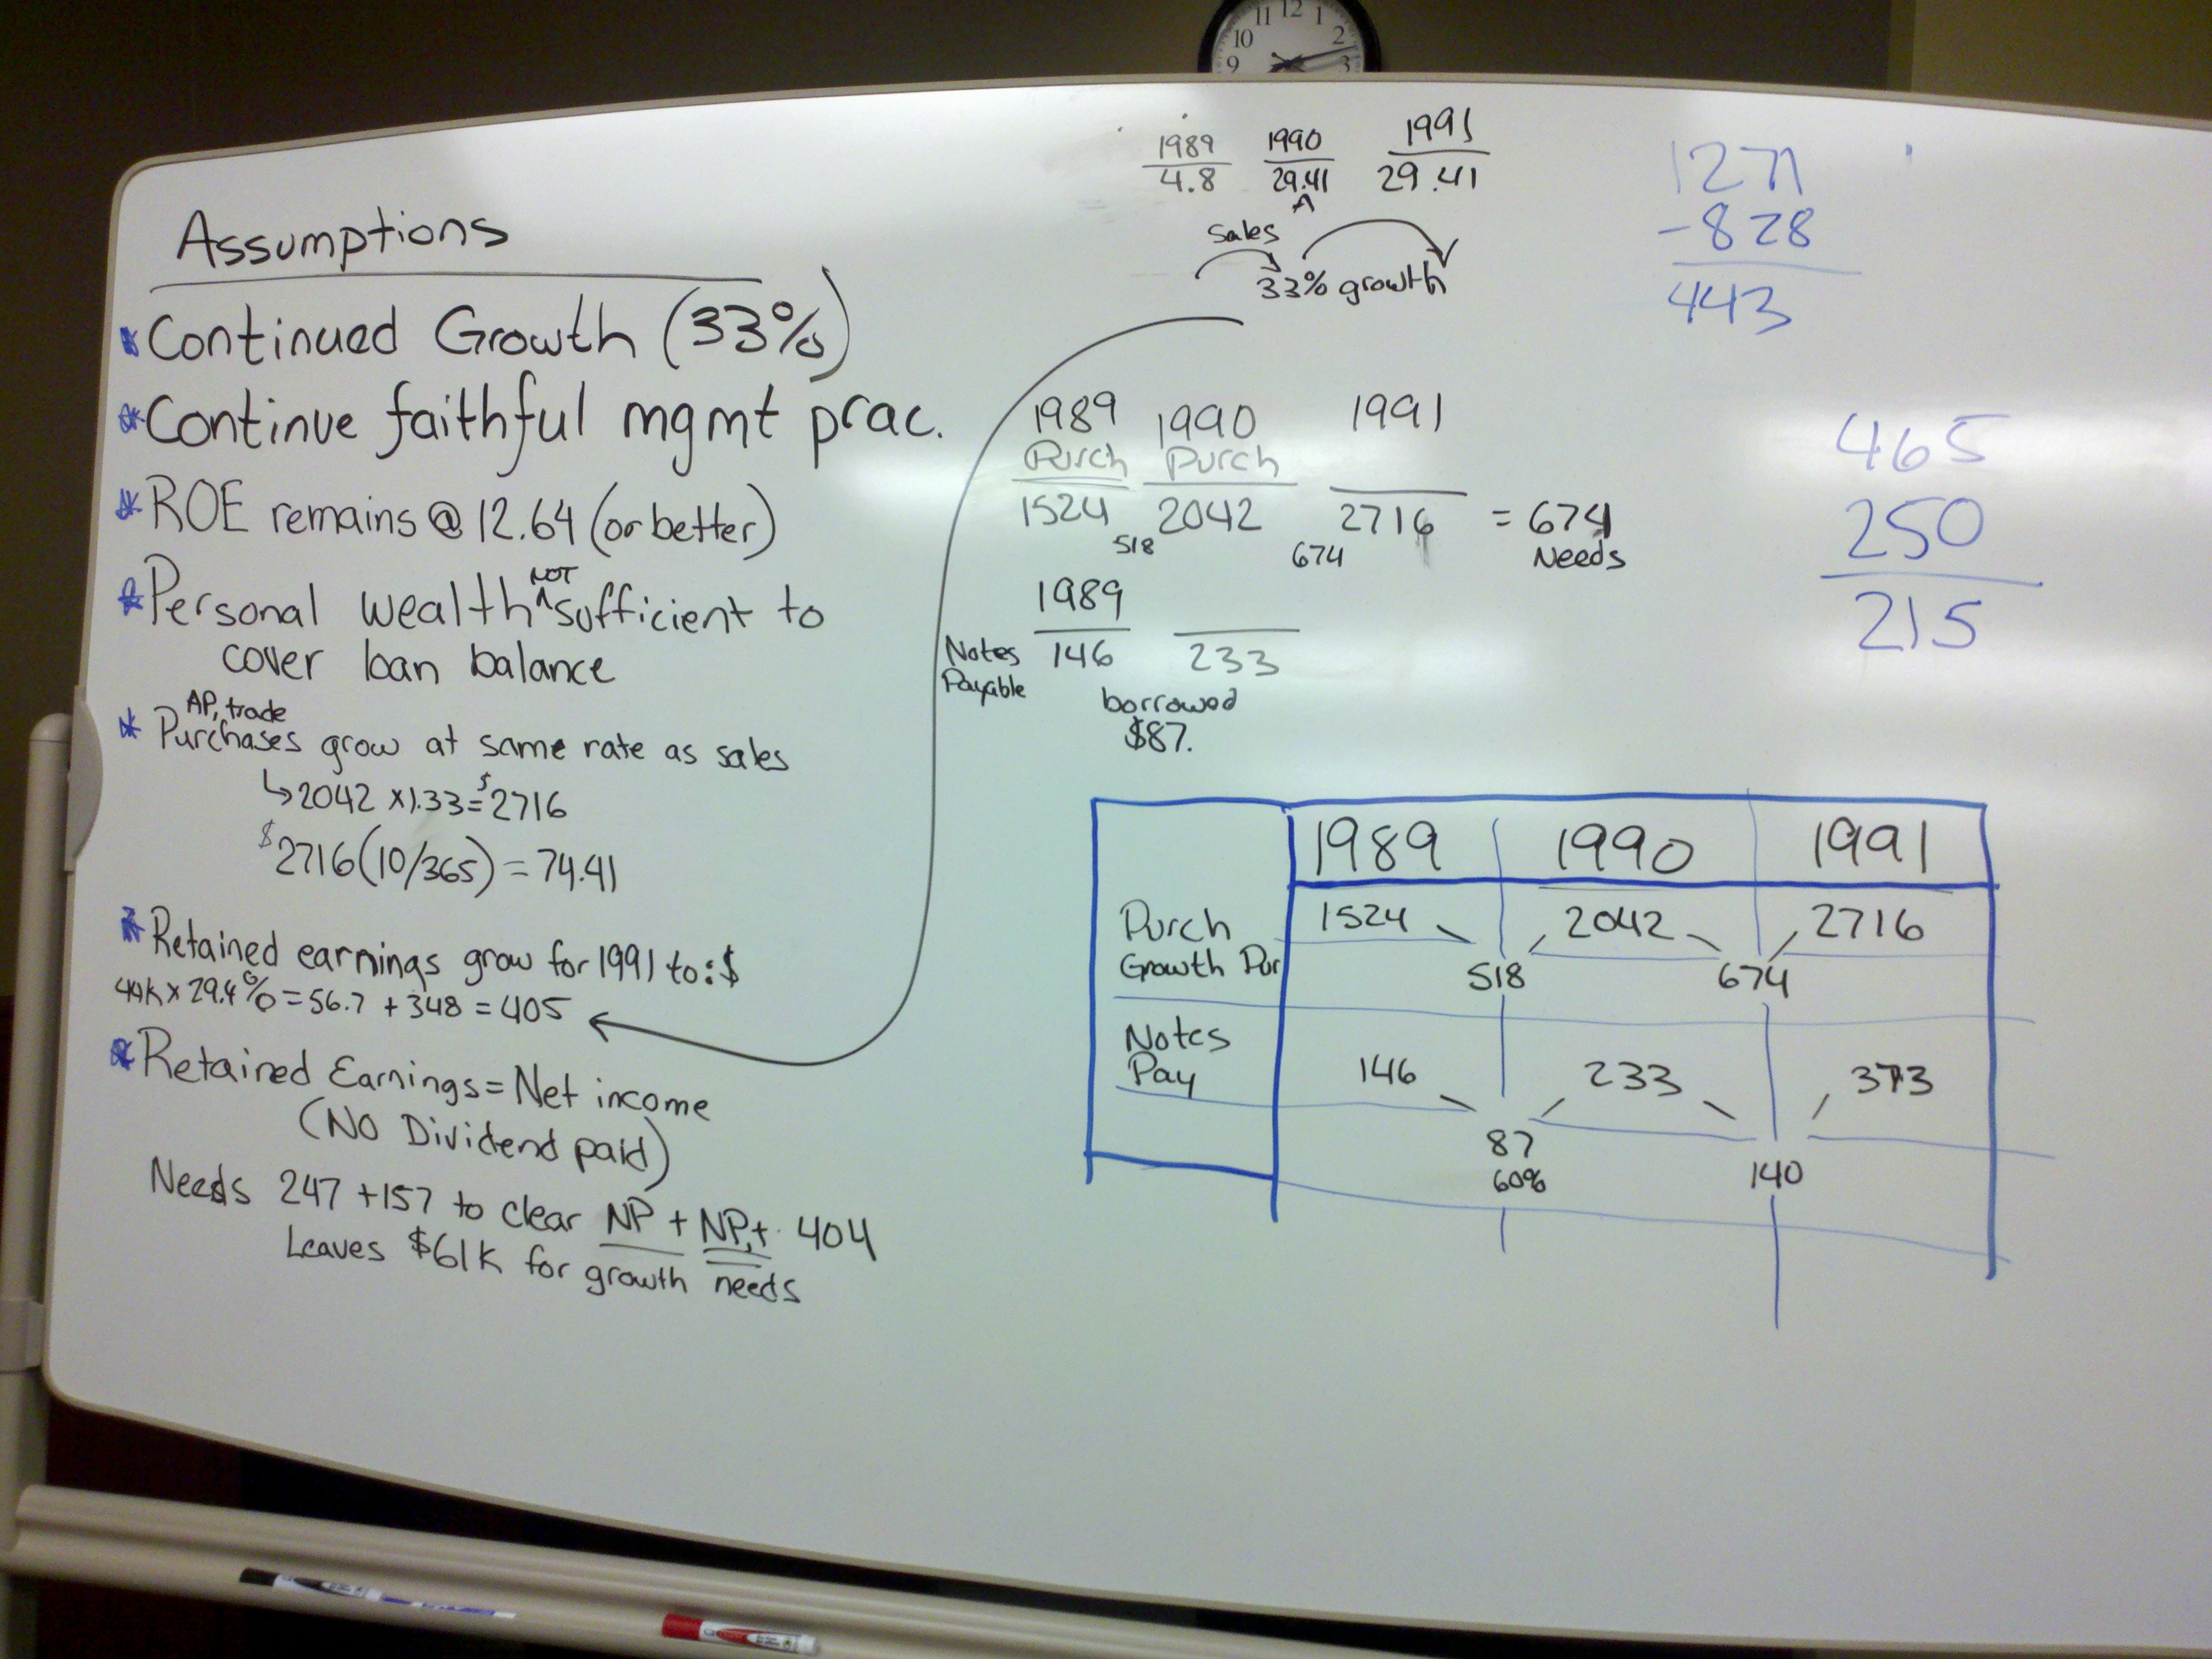 11 12 1
10 2
9 3
Assumptions
* Continued Growth (33%)
* Continue faithful mgmt prac.
* ROE remains @ 12.64 (or better)
* Personal wealth ^NOT sufficient to
cover loan balance
AP, trade
* Purchases grow at same rate as sales
↳ 2042 x 1.33 = $2716
$2716 (10/365) = 74.41
* Retained earnings grow for 1991 to: $
44K x 29.4% = 56.7 + 348 = 405
* Retained Earnings = Net income
(No Dividend paid)
Needs 247 + 157 to clear NP + NP,+ 404
Leaves $61K for growth needs
1989 1990 1991
4.8 29.41 29.41
Sales
33% growth
1989 1990 1991
Purch Purch
1524 2042 2716 = 674
518 674 Needs
1989
Notes 146 233
Payable
borrowed
$87.
1271
-828
443
465
250
215
1989 1990 1991
Purch 1524 2042 2716
Growth Pur 518 674
Notes
Pay 146 233 373
87 140
60%